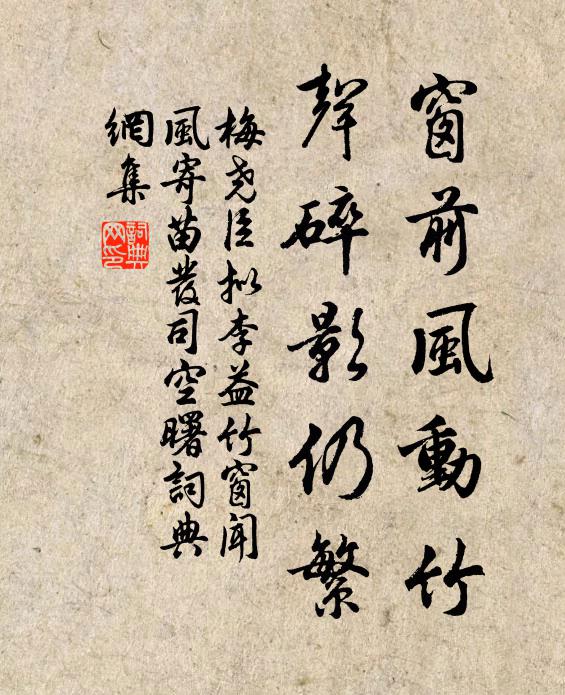 窗前風動竹
聲碎影仍繁
梅堯臣擬李益竹窗聞
風寄苗發司空曙詞典
網集
詞典
网印